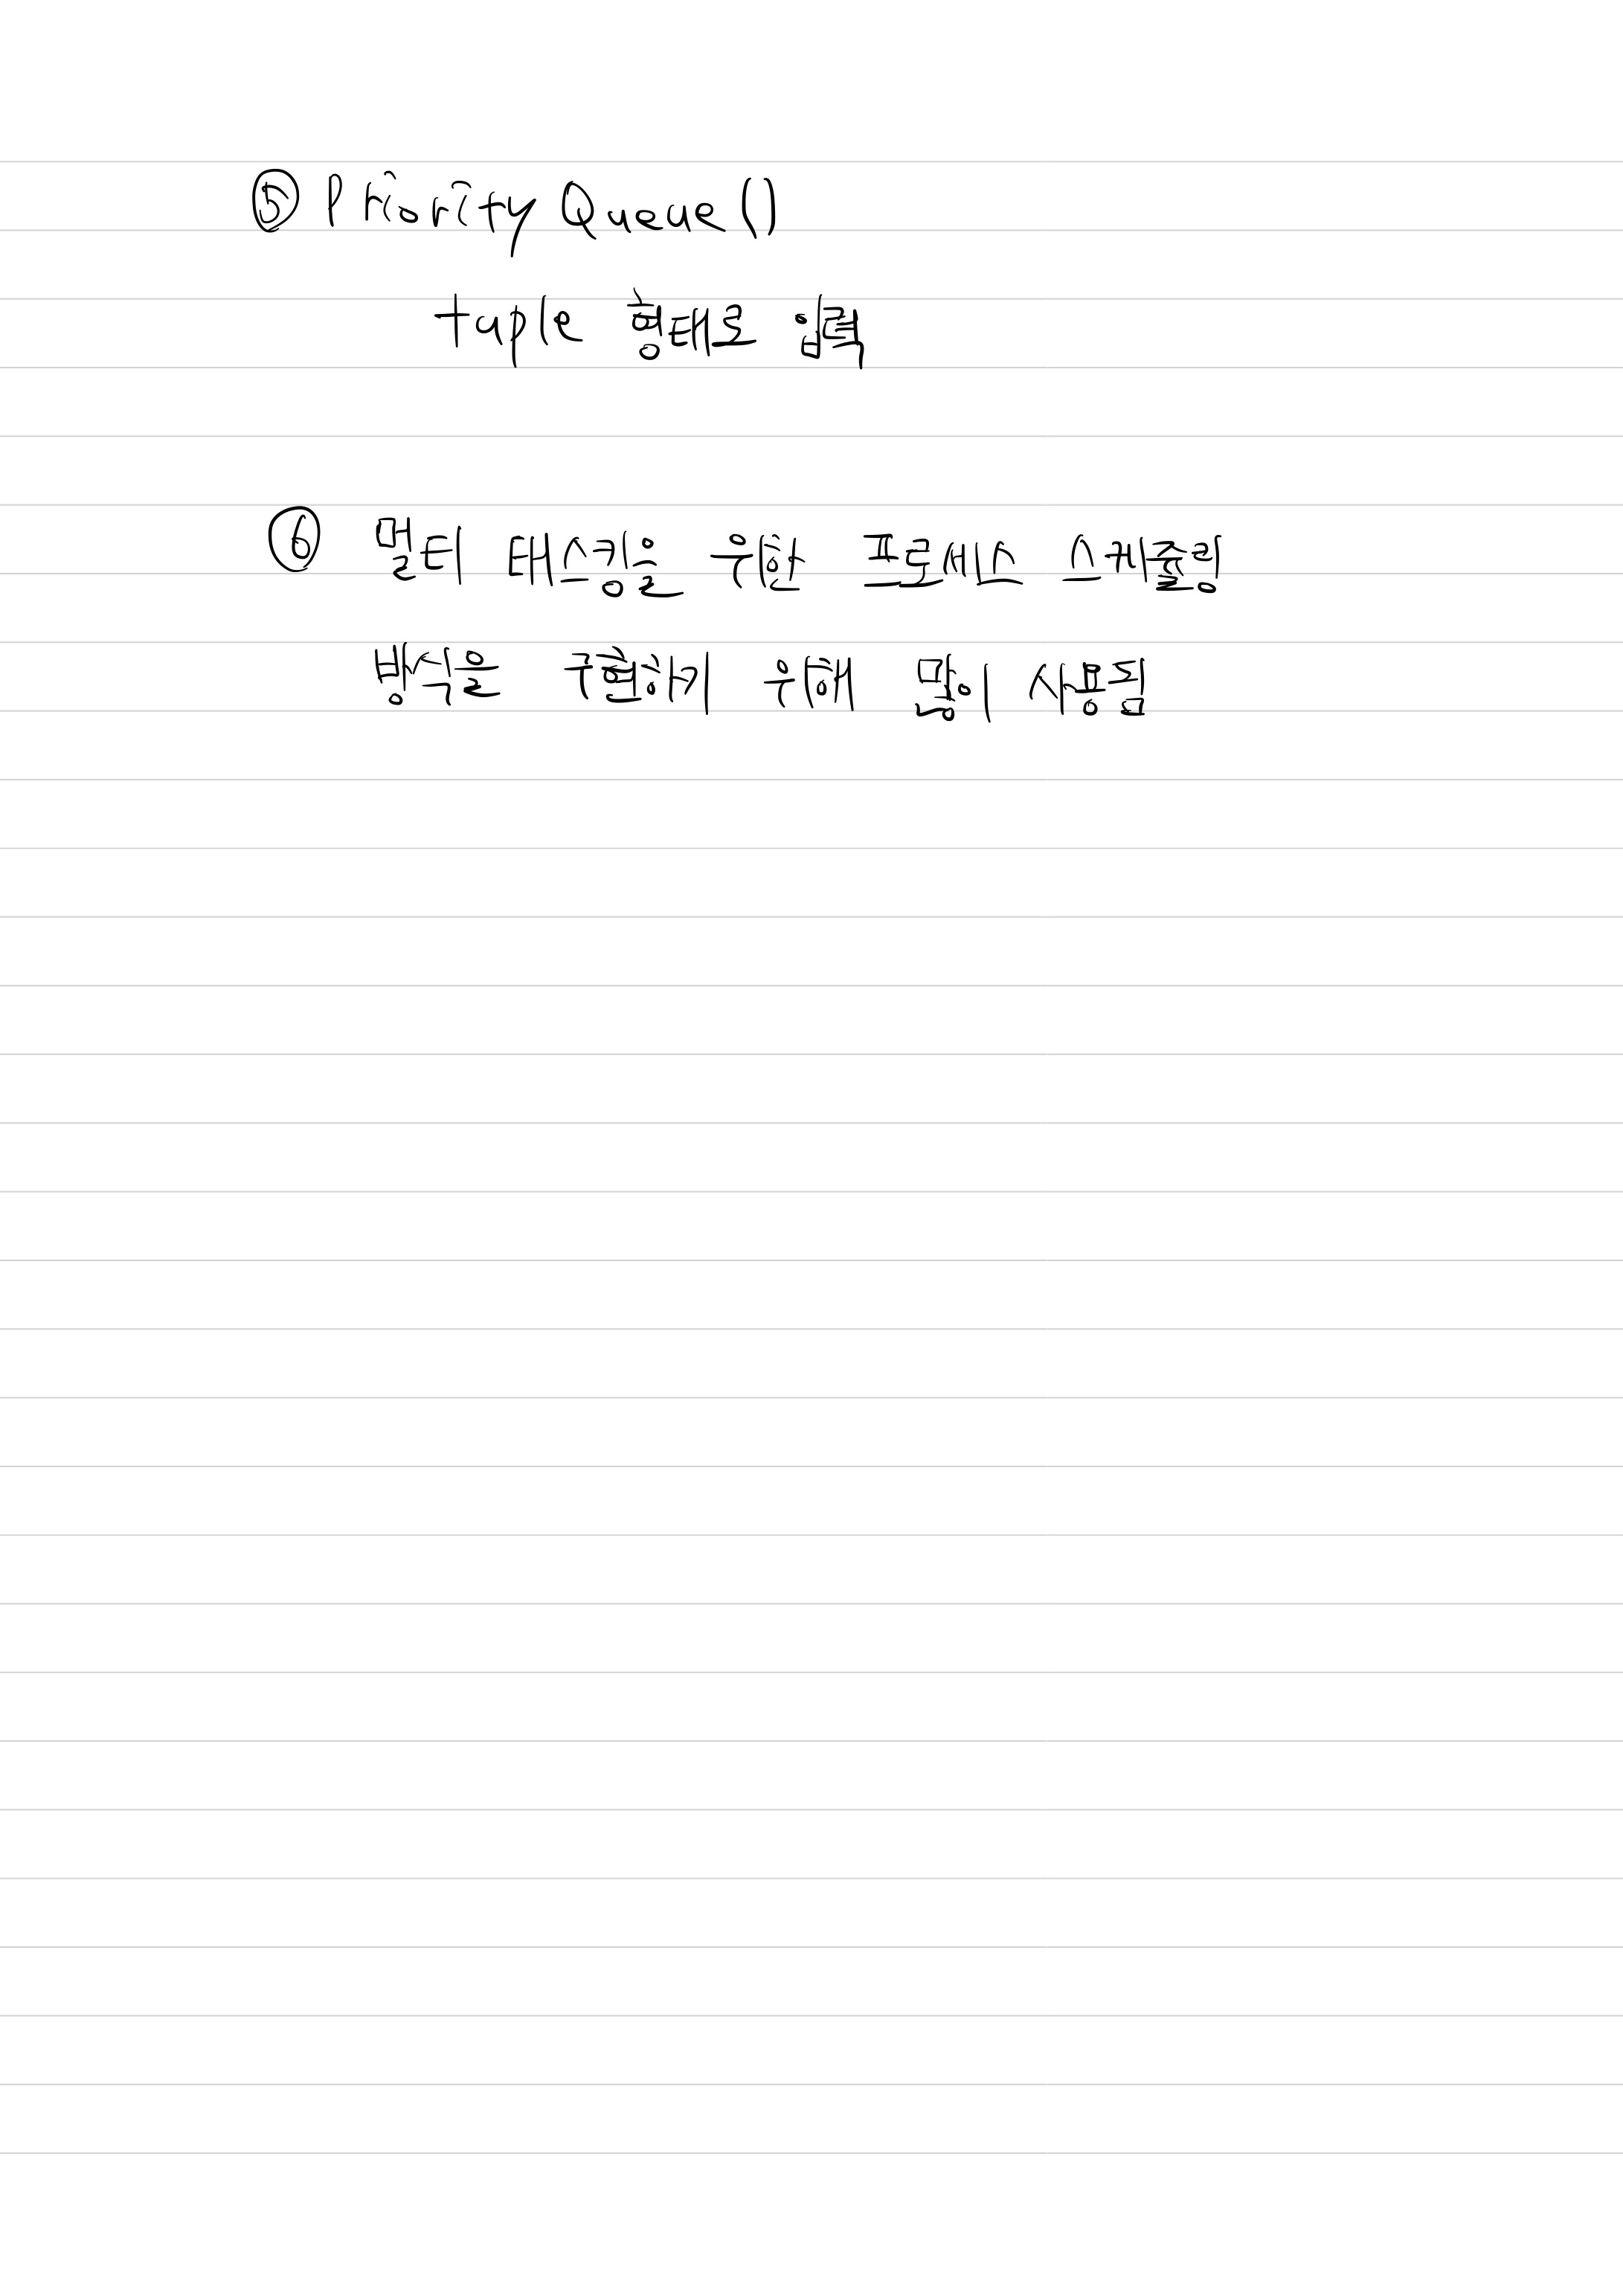 ⑤ Priority Queue()
tuple 형태로 입력
⑥ 멀티 태스킹을 위한 프로세스 스케쥴링
방식을 구현하기 위해 많이 사용됨